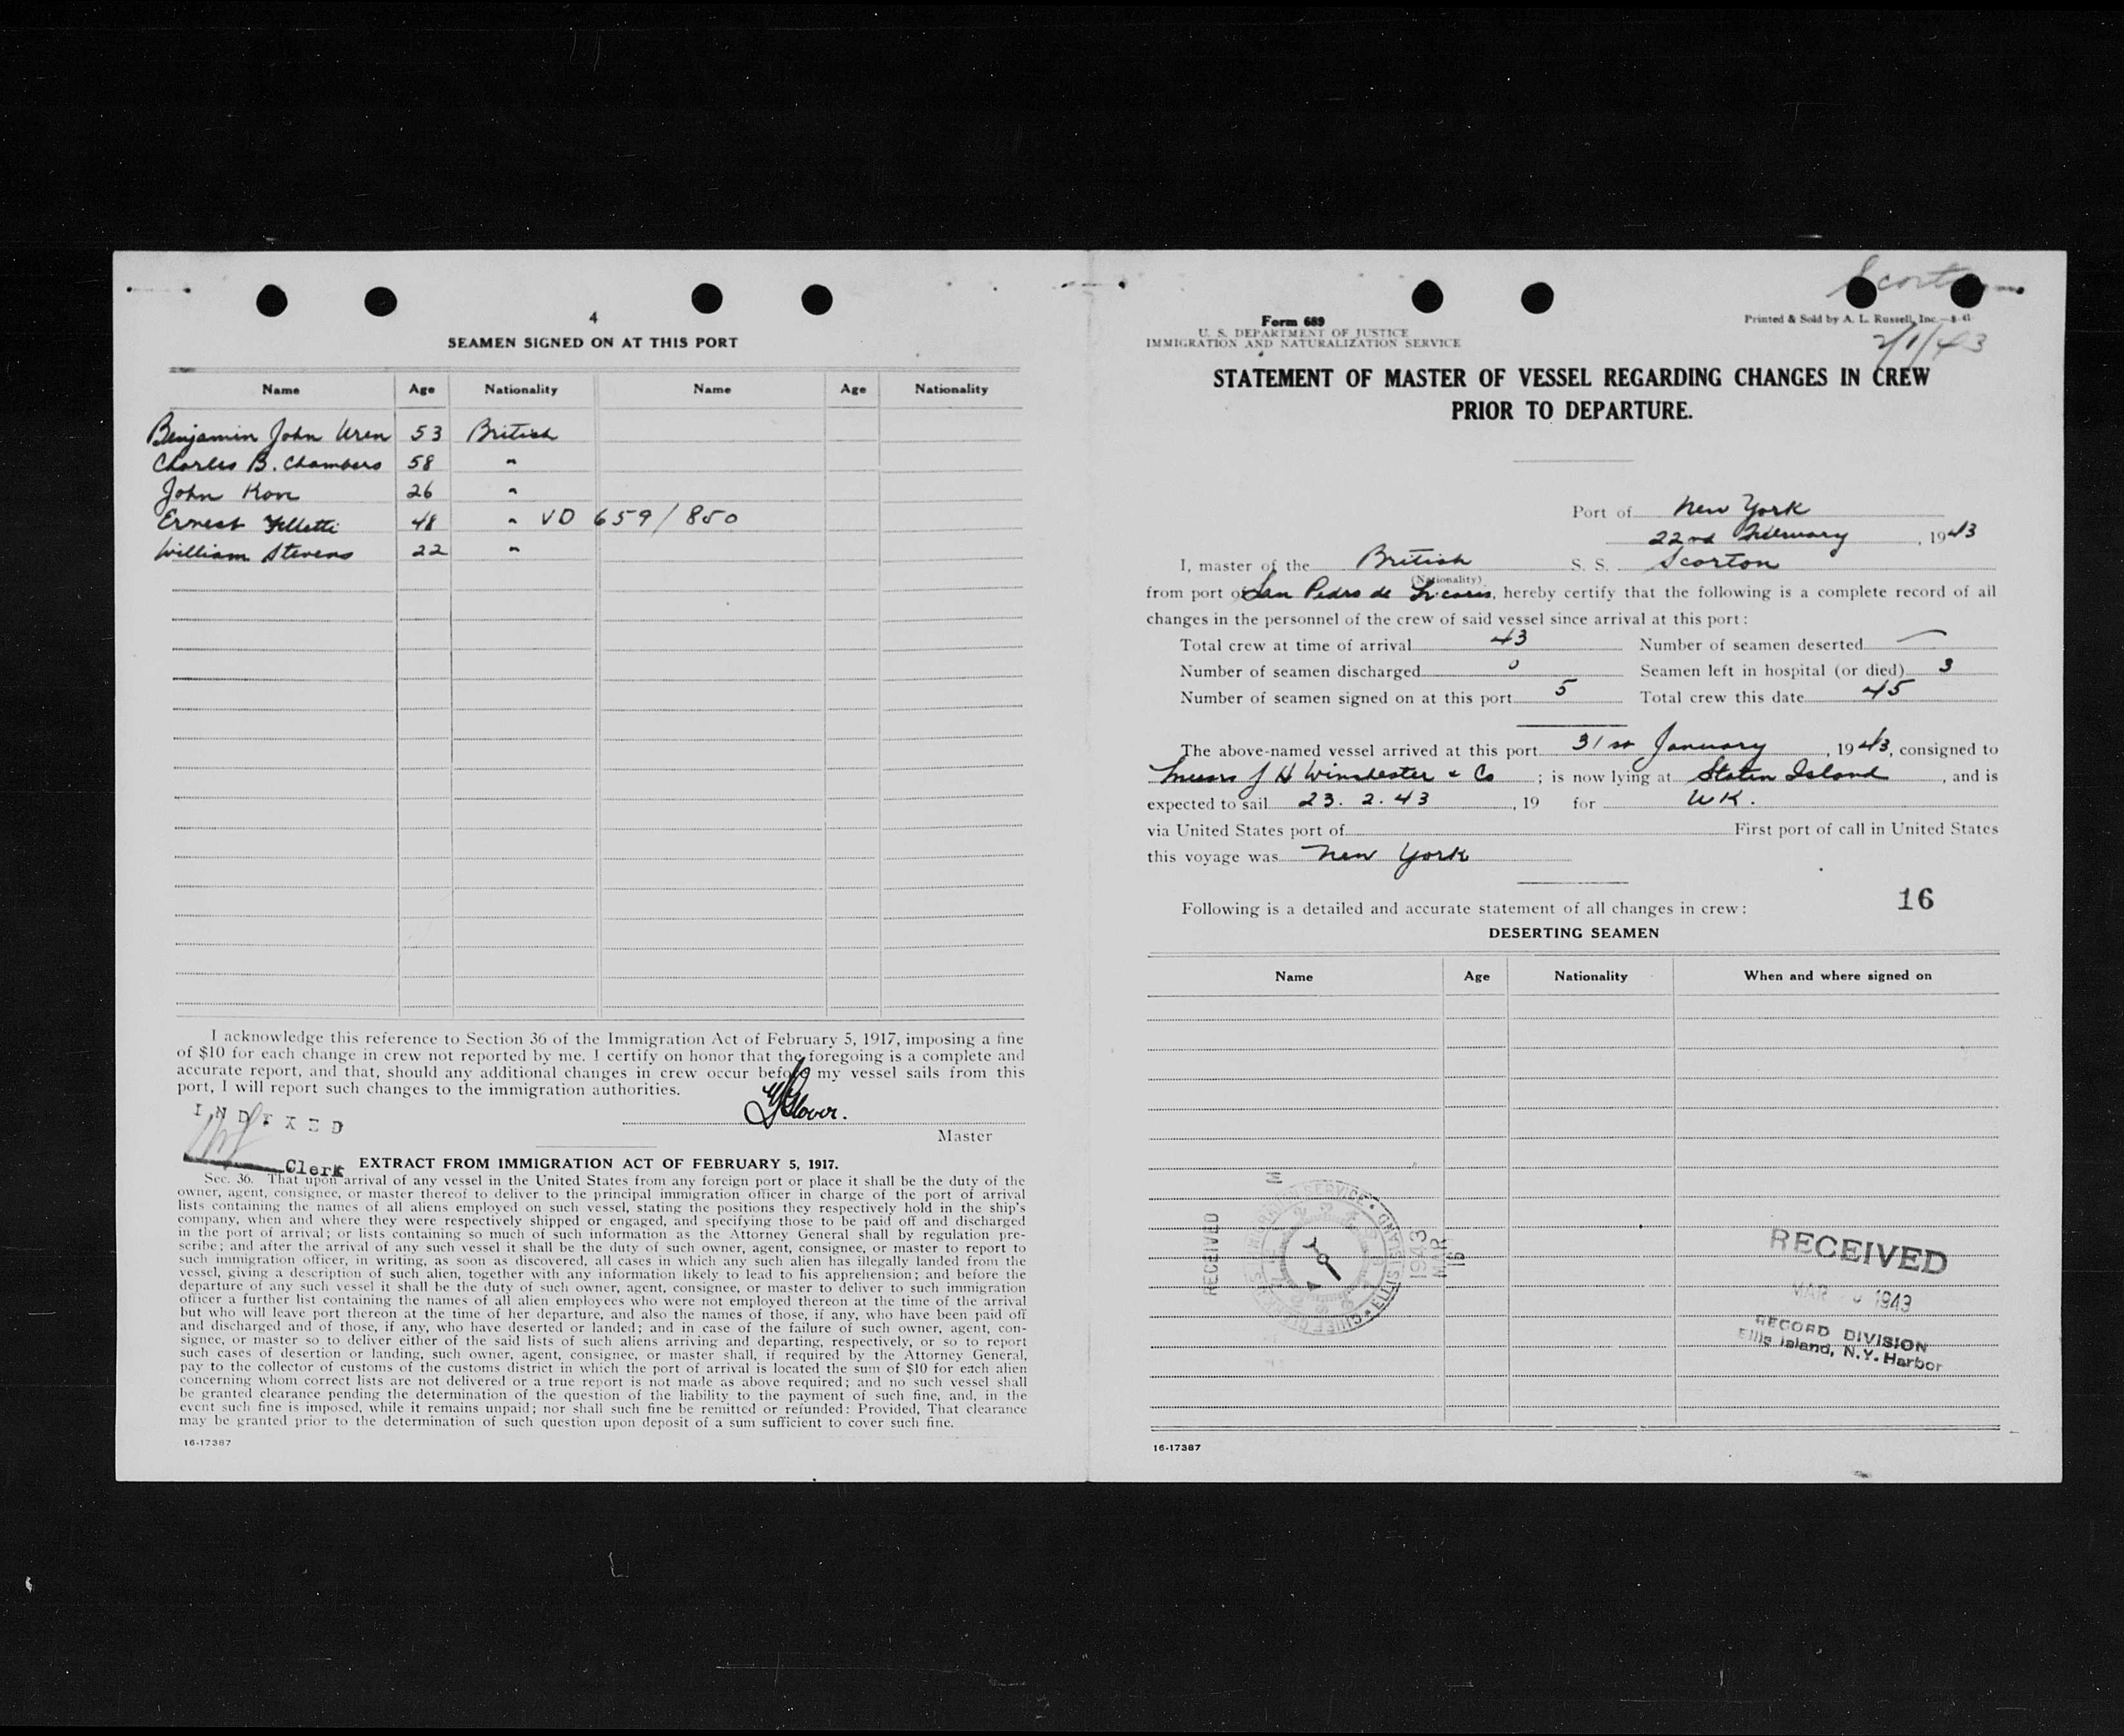 4
SEAMEN SIGNED ON AT THIS PORT
Name Age Nationality Name Age Nationality
Benjamin John Uren 53 British
Charles B. Chambers 58 "
John 26 "
Ernest 48 " VD 659/850
William Stevens 22 "
I acknowledge this reference to Section 36 of the Immigration Act of February 5, 1917, imposing a fine
of $10 for each change in crew not reported by me. I certify on honor that the foregoing is a complete and
accurate report, and that, should any additional changes in crew occur before my vessel sails from this
port, I will report such changes to the immigration authorities.
Glover.
Master
INDEXED
Clerk
EXTRACT FROM IMMIGRATION ACT OF FEBRUARY 5, 1917.
Sec. 36. That upon arrival of any vessel in the United States from any foreign port or place it shall be the duty of the
owner, agent, consignee, or master thereof to deliver to the principal immigration officer in charge of the port of arrival
lists containing the names of all aliens employed on such vessel, stating the positions they respectively hold in the ship's
company, when and where they were respectively shipped or engaged, and specifying those to be paid off and discharged
in the port of arrival; or lists containing so much of such information as the Attorney General shall by regulation pre-
scribe; and after the arrival of any such vessel it shall be the duty of such owner, agent, consignee, or master to report to
such immigration officer, in writing, as soon as discovered, all cases in which any such alien has illegally landed from the
vessel, giving a description of such alien, together with any information likely to lead to his apprehension; and before the
departure of any such vessel it shall be the duty of such owner, agent, consignee, or master to deliver to such immigration
officer a further list containing the names of all alien employees who were not employed thereon at the time of the arrival
but who will leave port thereon at the time of her departure, and also the names of those, if any, who have been paid off
and discharged and of those, if any, who have deserted or landed; and in case of the failure of such owner, agent, con-
signee, or master so to deliver either of the said lists of such aliens arriving and departing, respectively, or so to report
such cases of desertion or landing, such owner, agent, consignee, or master shall, if required by the Attorney General,
pay to the collector of customs of the customs district in which the port of arrival is located the sum of $10 for each alien
concerning whom correct lists are not delivered or a true report is not made as above required; and no such vessel shall
be granted clearance pending the determination of the question of the liability to the payment of such fine, and, in the
event such fine is imposed, while it remains unpaid; nor shall such fine be remitted or refunded: Provided, That clearance
may be granted prior to the determination of such question upon deposit of a sum sufficient to cover such fine.
16-17387
Scorton
Form 689
U. S. DEPARTMENT OF JUSTICE
IMMIGRATION AND NATURALIZATION SERVICE
Printed & Sold by A. L. Russell, Inc.—8-41
2/1/43
STATEMENT OF MASTER OF VESSEL REGARDING CHANGES IN CREW
PRIOR TO DEPARTURE.
Port of New York
22nd February, 1943
I, master of the British S. S. Scorton
(Nationality)
from port of San Pedro de, hereby certify that the following is a complete record of all
changes in the personnel of the crew of said vessel since arrival at this port:
Total crew at time of arrival 43 Number of seamen deserted —
Number of seamen discharged 0 Seamen left in hospital (or died) 3
Number of seamen signed on at this port 5 Total crew this date 45
The above-named vessel arrived at this port 31st January, 1943, consigned to
Messrs J H Winchester & Co; is now lying at Staten Island, and is
expected to sail 23. 2. 43, 19 for UK.
via United States port of First port of call in United States
this voyage was New York
Following is a detailed and accurate statement of all changes in crew:
16
DESERTING SEAMEN
Name Age Nationality When and where signed on
RECEIVED
1943 MAR 16
ELLIS ISLAND
RECEIVED
MAR 1943
RECORD DIVISION
Ellis Island, N.Y. Harbor
16-17387